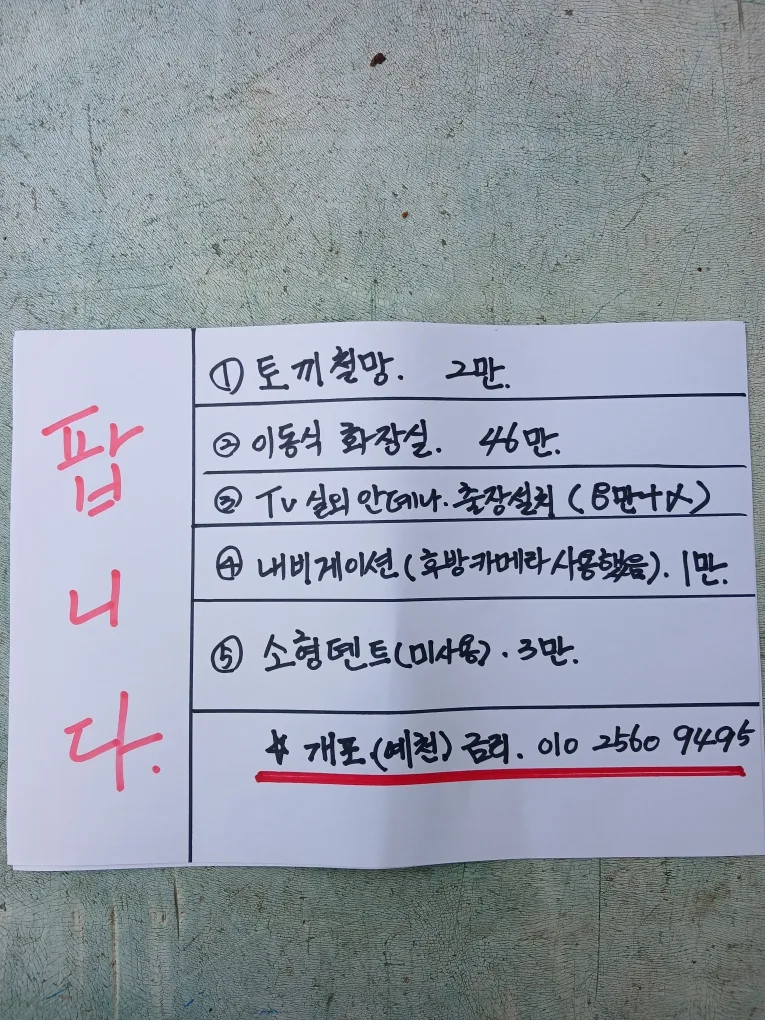 팝니다.
① 토끼철망. 2만.
② 이동식 화장실. 46만.
③ TV 실외 안데나. 출장설치 (8만+α)
④ 내비게이션(후방카메라 사용했음). 1만.
⑤ 소형덴트(미사용). 3만.
* 개포(예천) 금리. 010 2560 9495